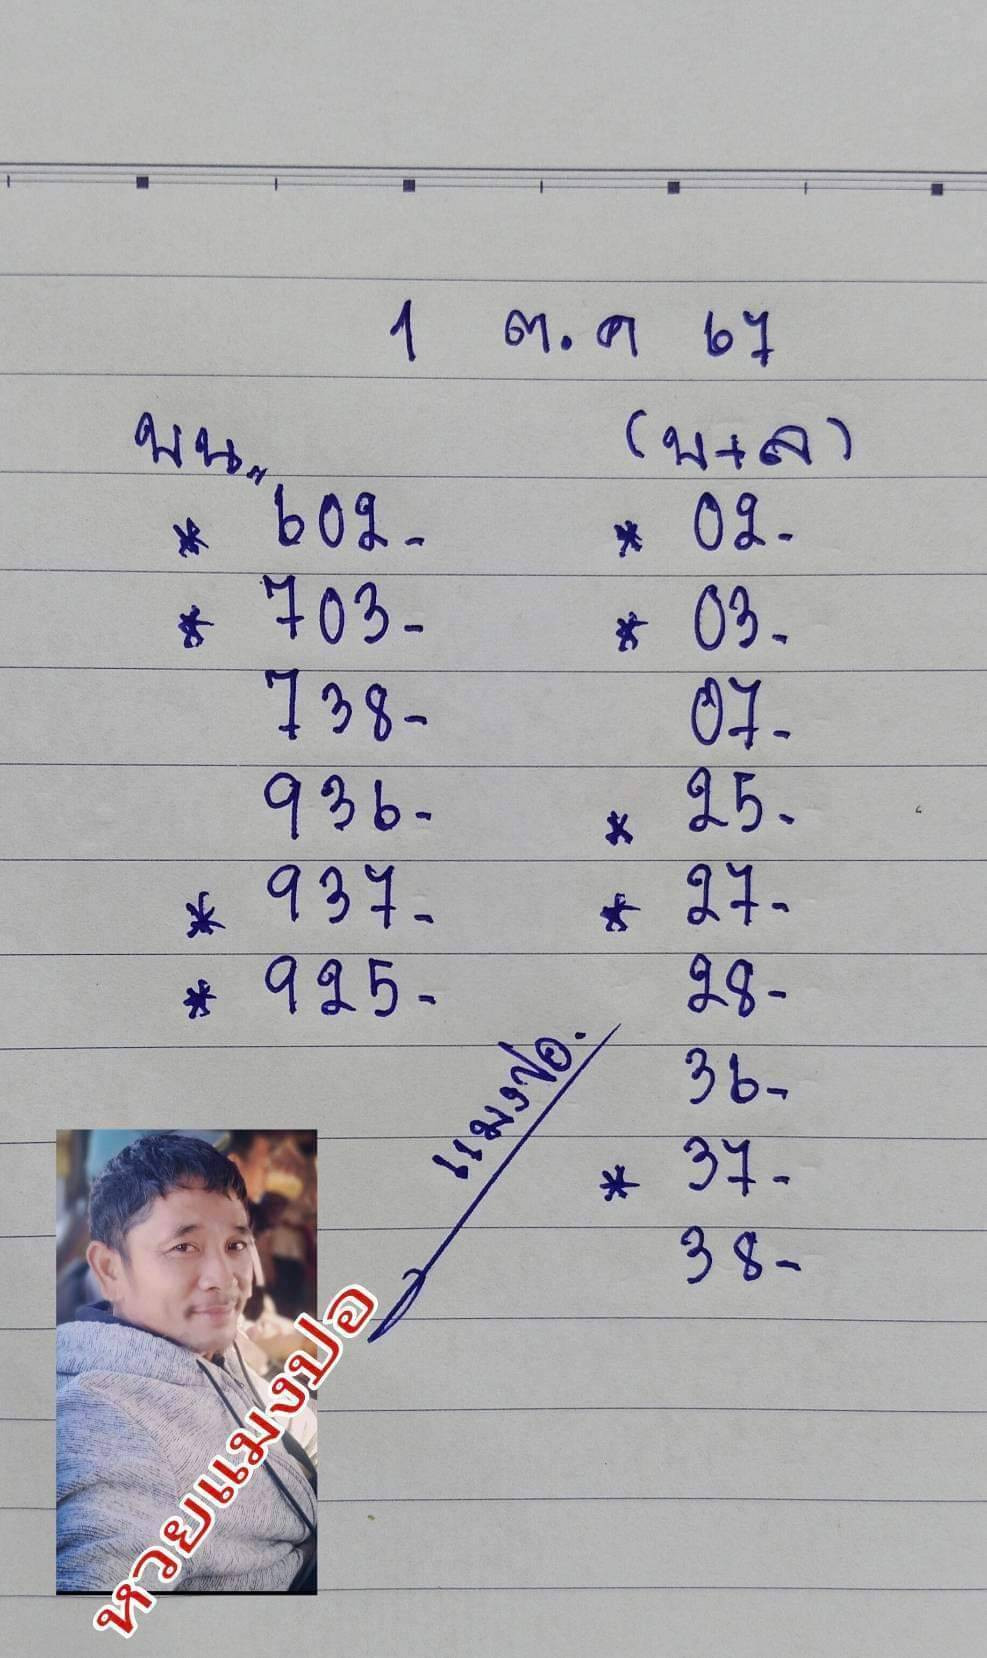 1 ต.ค 67
บน.. (บ+ล)
* 602- * 02-
* 703- * 03-
738- 07-
936- * 25-
* 937- * 27-
* 925- 28-
36-
* 37-
38-
แมงปอ.
หวยแมงปอ